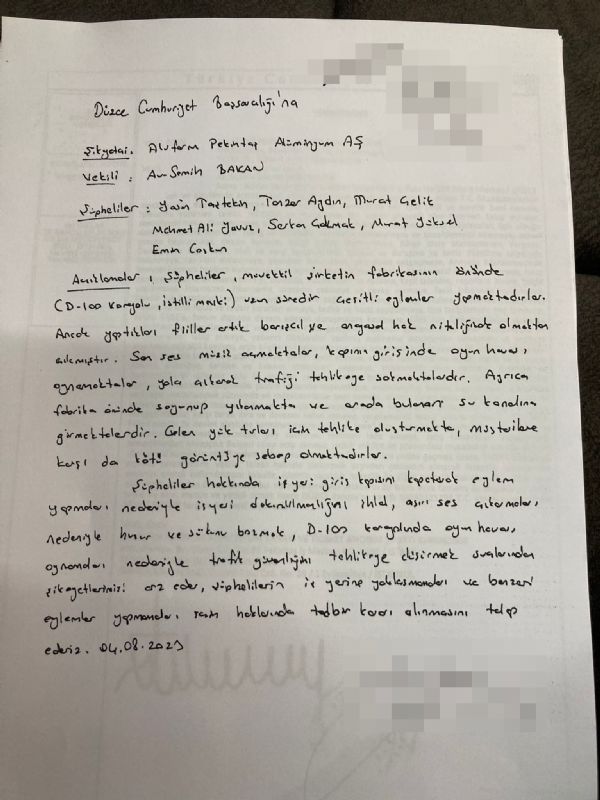 Düzce Cumhuriyet Başsavcılığı'na
Şikyetçi. Aluform Pekintaş Alüminyum AŞ
Vekili : Av. Semih BAKAN
Şüpheliler : Yasin Taştekin, Tanzer Aydın, Murat Çelik
Mehmet Ali Yavuz, Serkan Gökmak, Murat Yüksel
Emin Coşkun
Açıklamalar : Şüpheliler, müvekkil şirketin fabrikasının önünde
(D-100 karayolu, istilli mevki) uzun süredir çeşitli eylemler yapmaktadırlar.
Ancak yaptıkları fiiller artık barışçıl ve anayasal hak niteliğinde olmaktan
çıkmıştır. Son ses müzik açmaktalar, kapının girişinde oyun havası
oynamaktalar, yola çıkarak trafiği tehlikeye sokmaktalardır. Ayrıca
fabrika önünde soyunup yıkanmakta ve orada bulunan su kanalına
girmektelerdir. Gelen yük tırları için tehlike oluşturmakta, müşterilere
karşı da kötü görüntüye sebep olmaktadırlar.
Şüpheliler hakkında işyeri giriş kapısını kapatarak eylem
yapmaları nedeniyle işyeri dokunulmazlığını ihlal, aşırı ses çıkarmaları
nedeniyle huzur ve sükunu bozmak, D-100 karayolunda oyun havası
oynamaları nedeniyle trafik güvenliğini tehlikeye düşürmek suçlarından
şikayetlerimizi arz eder, şüphelilerin iş yerine yaklaşmamaları ve benzeri
eylemler yapmamaları için haklarında tedbir kararı alınmasını talep
ederiz. 04.08.2023